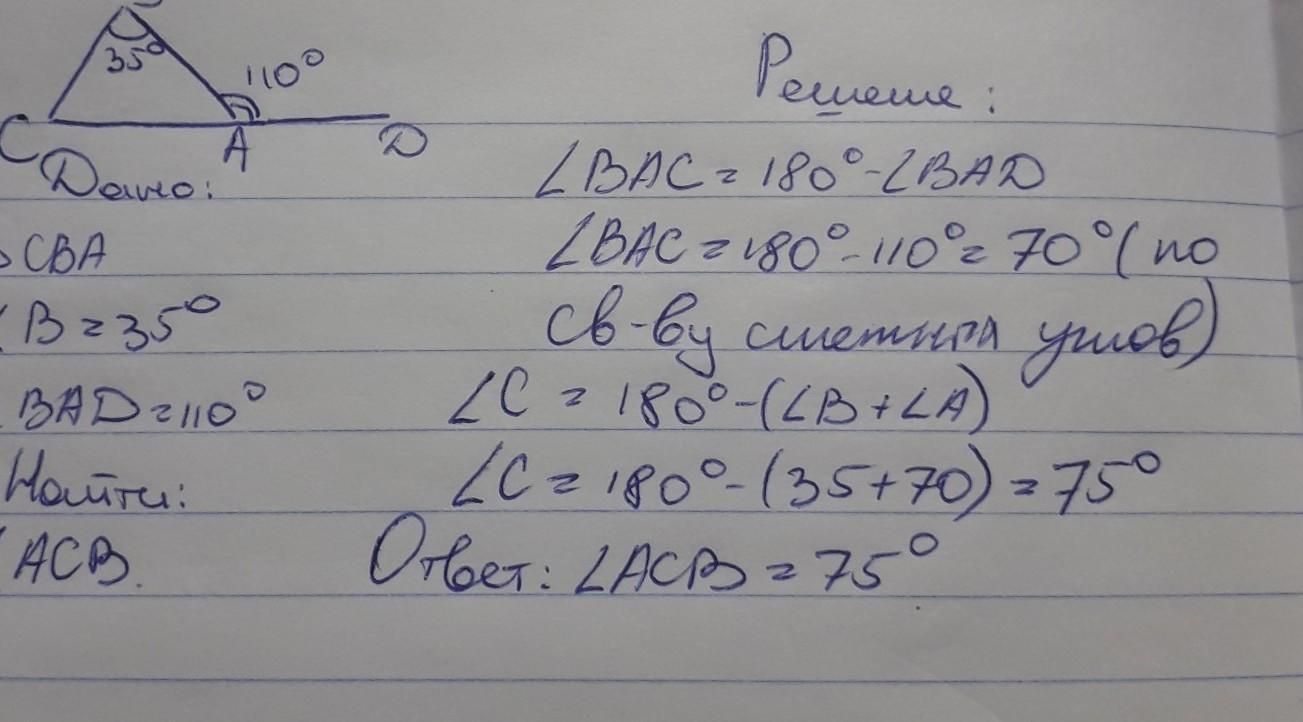 35°
110°
C
A
D
Дано:
CBA
B = 35°
BAD = 110°
Найти:
ACB.
Решение:
∠BAC = 180° - ∠BAD
∠BAC = 180° - 110° = 70° (по
св-ву смежных углов)
∠C = 180° - (∠B + ∠A)
∠C = 180° - (35 + 70) = 75°
Ответ: ∠ACB = 75°